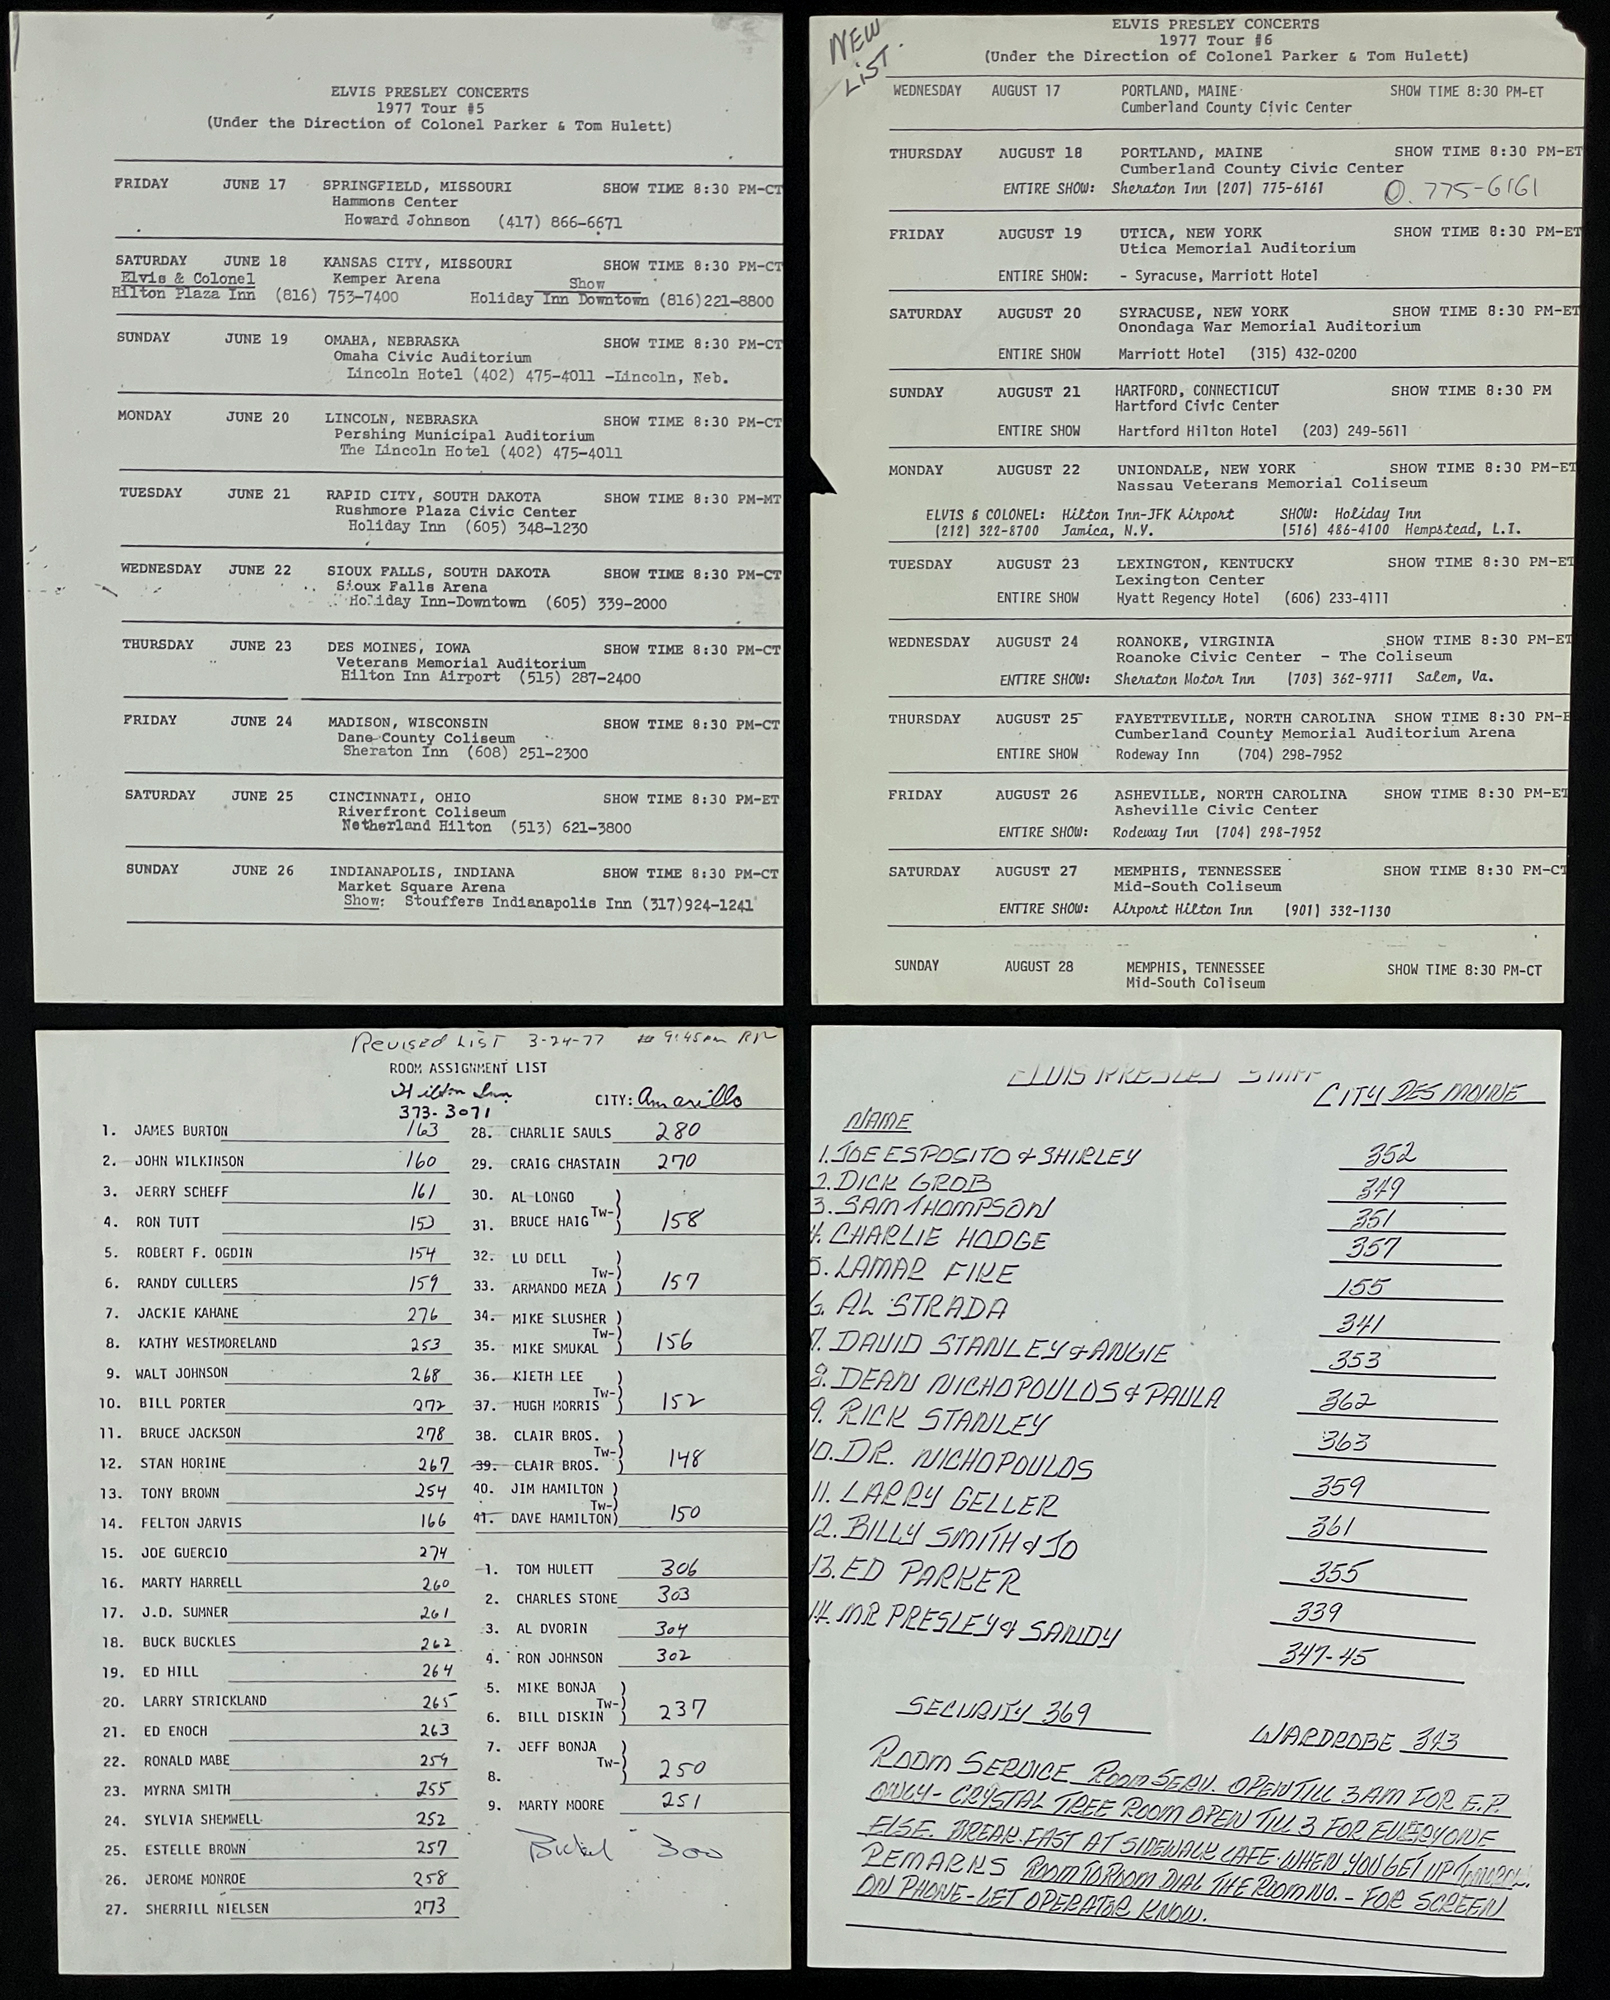 ELVIS PRESLEY CONCERTS
1977 Tour #5
(Under the Direction of Colonel Parker & Tom Hulett)
FRIDAY JUNE 17 SPRINGFIELD, MISSOURI SHOW TIME 8:30 PM-CT
Hammons Center
Howard Johnson (417) 866-6671
SATURDAY JUNE 18 KANSAS CITY, MISSOURI SHOW TIME 8:30 PM-CT
Elvis & Colonel Kemper Arena Show
Hilton Plaza Inn (816) 753-7400 Holiday Inn Downtown (816)221-8800
SUNDAY JUNE 19 OMAHA, NEBRASKA SHOW TIME 8:30 PM-CT
Omaha Civic Auditorium
Lincoln Hotel (402) 475-4011 -Lincoln, Neb.
MONDAY JUNE 20 LINCOLN, NEBRASKA SHOW TIME 8:30 PM-CT
Pershing Municipal Auditorium
The Lincoln Hotel (402) 475-4011
TUESDAY JUNE 21 RAPID CITY, SOUTH DAKOTA SHOW TIME 8:30 PM-MT
Rushmore Plaza Civic Center
Holiday Inn (605) 348-1230
WEDNESDAY JUNE 22 SIOUX FALLS, SOUTH DAKOTA SHOW TIME 8:30 PM-CT
Sioux Falls Arena
Holiday Inn-Downtown (605) 339-2000
THURSDAY JUNE 23 DES MOINES, IOWA SHOW TIME 8:30 PM-CT
Veterans Memorial Auditorium
Hilton Inn Airport (515) 287-2400
FRIDAY JUNE 24 MADISON, WISCONSIN SHOW TIME 8:30 PM-CT
Dane County Coliseum
Sheraton Inn (608) 251-2300
SATURDAY JUNE 25 CINCINNATI, OHIO SHOW TIME 8:30 PM-ET
Riverfront Coliseum
Netherland Hilton (513) 621-3800
SUNDAY JUNE 26 INDIANAPOLIS, INDIANA SHOW TIME 8:30 PM-CT
Market Square Arena
Show: Stouffers Indianapolis Inn (317)924-1241
NEW LIST.
ELVIS PRESLEY CONCERTS
1977 Tour #6
(Under the Direction of Colonel Parker & Tom Hulett)
WEDNESDAY AUGUST 17 PORTLAND, MAINE SHOW TIME 8:30 PM-ET
Cumberland County Civic Center
THURSDAY AUGUST 18 PORTLAND, MAINE SHOW TIME 8:30 PM-ET
Cumberland County Civic Center
ENTIRE SHOW: Sheraton Inn (207) 775-6161 O. 775-6161
FRIDAY AUGUST 19 UTICA, NEW YORK SHOW TIME 8:30 PM-ET
Utica Memorial Auditorium
ENTIRE SHOW: - Syracuse, Marriott Hotel
SATURDAY AUGUST 20 SYRACUSE, NEW YORK SHOW TIME 8:30 PM-ET
Onondaga War Memorial Auditorium
ENTIRE SHOW Marriott Hotel (315) 432-0200
SUNDAY AUGUST 21 HARTFORD, CONNECTICUT SHOW TIME 8:30 PM
Hartford Civic Center
ENTIRE SHOW Hartford Hilton Hotel (203) 249-5611
MONDAY AUGUST 22 UNIONDALE, NEW YORK SHOW TIME 8:30 PM-ET
Nassau Veterans Memorial Coliseum
ELVIS & COLONEL: Hilton Inn-JFK Airport SHOW: Holiday Inn
(212) 322-8700 Jamica, N.Y. (516) 486-4100 Hempstead, L.I.
TUESDAY AUGUST 23 LEXINGTON, KENTUCKY SHOW TIME 8:30 PM-ET
Lexington Center
ENTIRE SHOW Hyatt Regency Hotel (606) 233-4111
WEDNESDAY AUGUST 24 ROANOKE, VIRGINIA SHOW TIME 8:30 PM-ET
Roanoke Civic Center - The Coliseum
ENTIRE SHOW: Sheraton Motor Inn (703) 362-9711 Salem, Va.
THURSDAY AUGUST 25 FAYETTEVILLE, NORTH CAROLINA SHOW TIME 8:30 PM-E
Cumberland County Memorial Auditorium Arena
ENTIRE SHOW Rodeway Inn (704) 298-7952
FRIDAY AUGUST 26 ASHEVILLE, NORTH CAROLINA SHOW TIME 8:30 PM-ET
Asheville Civic Center
ENTIRE SHOW: Rodeway Inn (704) 298-7952
SATURDAY AUGUST 27 MEMPHIS, TENNESSEE SHOW TIME 8:30 PM-CT
Mid-South Coliseum
ENTIRE SHOW: Airport Hilton Inn (901) 332-1130
SUNDAY AUGUST 28 MEMPHIS, TENNESSEE SHOW TIME 8:30 PM-CT
Mid-South Coliseum
Revised List 3-24-77 9:45am
ROOM ASSIGNMENT LIST
Hilton Inn CITY: Amarillo
373-3071
1. JAMES BURTON 163
2. JOHN WILKINSON 160
3. JERRY SCHEFF 161
4. RON TUTT 153
5. ROBERT F. OGDIN 154
6. RANDY CULLERS 159
7. JACKIE KAHANE 276
8. KATHY WESTMORELAND 253
9. WALT JOHNSON 268
10. BILL PORTER 272
11. BRUCE JACKSON 278
12. STAN HORINE 267
13. TONY BROWN 254
14. FELTON JARVIS 166
15. JOE GUERCIO 274
16. MARTY HARRELL 260
17. J.D. SUMNER 261
18. BUCK BUCKLES 262
19. ED HILL 264
20. LARRY STRICKLAND 265
21. ED ENOCH 263
22. RONALD MABE 259
23. MYRNA SMITH 255
24. SYLVIA SHEMWELL 252
25. ESTELLE BROWN 257
26. JEROME MONROE 258
27. SHERRILL NIELSEN 273
28. CHARLIE SAULS 280
29. CRAIG CHASTAIN 270
30. AL LONGO
31. BRUCE HAIG Tw-) 158
32. LU DELL
33. ARMANDO MEZA Tw-) 157
34. MIKE SLUSHER
35. MIKE SMUKAL Tw-) 156
36. KIETH LEE
37. HUGH MORRIS Tw-) 152
38. CLAIR BROS.
39. CLAIR BROS. Tw-) 148
40. JIM HAMILTON
41. DAVE HAMILTON Tw-) 150
1. TOM HULETT 306
2. CHARLES STONE 303
3. AL DVORIN 304
4. RON JOHNSON 302
5. MIKE BONJA
6. BILL DISKIN Tw-) 237
7. JEFF BONJA
8. Tw-) 250
9. MARTY MOORE 251
300
ELVIS PRESLEY STAFF
CITY DES MOINE
NAME
1. JOE ESPOSITO & SHIRLEY 352
2. DICK GROB 349
3. SAM THOMPSON 351
4. CHARLIE HODGE 357
5. LAMAR FIKE 155
6. AL STRADA 341
7. DAVID STANLEY & ANGIE 353
8. DEAN NICHOPOULOS & PAULA 362
9. RICK STANLEY 363
10. DR. NICHOPOULOS 359
11. LARRY GELLER 361
12. BILLY SMITH & JO 355
13. ED PARKER 339
14. MR PRESLEY & SANDY 347-45
SECURITY 369
WARDROBE 343
ROOM SERVICE ROOM SERV. OPEN TILL 3 AM FOR E.P.
ONLY - CRYSTAL TREE ROOM OPEN TILL 3 FOR EVERYONE
ELSE. BREAK-FAST AT SIDEWALK CAFE WHEN YOU GET UP
REMARKS ROOM TO ROOM DIAL THE ROOM NO. - FOR SCREEN
ON PHONE - LET OPERATOR KNOW.